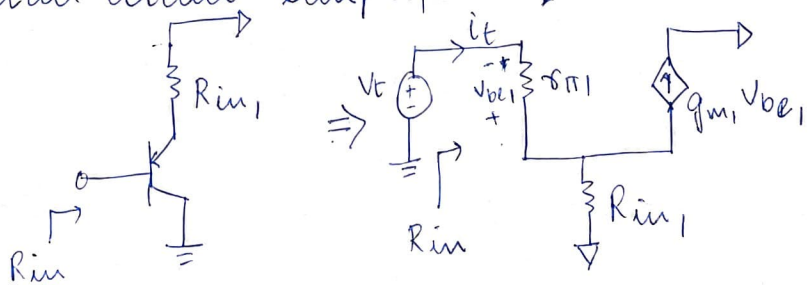 Rin1
Rin
⇒
Vt
+
-
it
- +
vbe1
+
rπ1
gm1 vbe1
Rin
Rin1